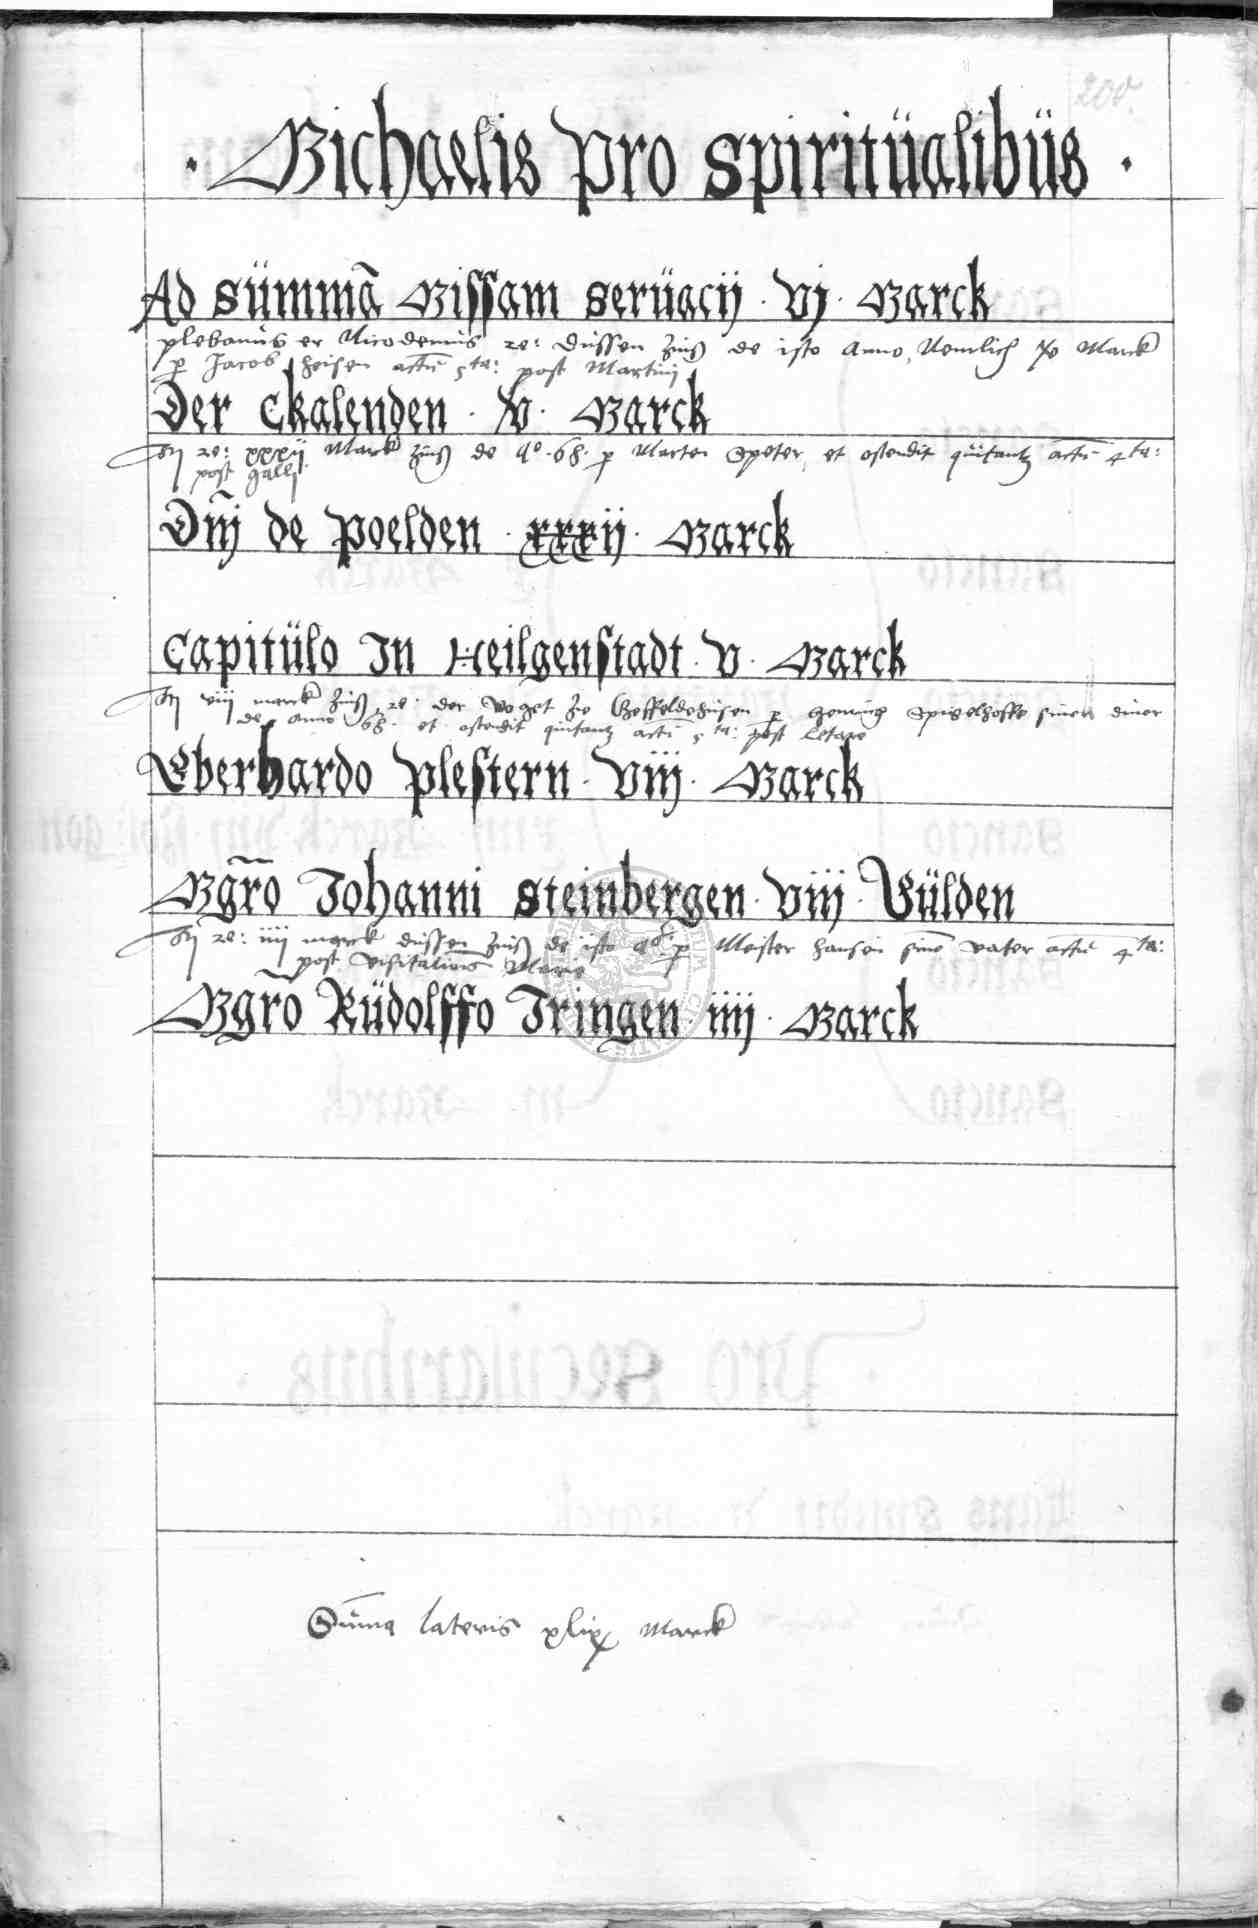 200.
· Michaelis pro spiritüalibüs ·
Ad sümmā Missam serüacij · vj · Marck
plebanüs er Nicodemüs re: düssen zinß de isto Anno, Nemlich x Marck
p Jacob heisen actū 5ta: post Martinj
Der Ckalenden · v · Marck
re: xxxij Marck zinß de a° · 68 · p Marten Speter, et ostendit quitantz actū 4ta:
post Gallj
Dnj de poelden · xxxij · Marck
Capitülo In Heilgenstadt · v · Marck
viij marck zinß re: der voget zo p Spigelhoffe sinen diner
de anno 68 · et ostendit quitantz actū 5ta: post Letare
Eberhardo plestern · viij · Marck
Mgro Johanni steinbergen · viij · Gülden
re: iiij marck düssen zinß de isto a° p Meister Hansen sine vater actū 4ta:
post visitationis Marie
Mgro Rüdolffo Iringen · iiij · Marck
Süma lateris xlix Marck